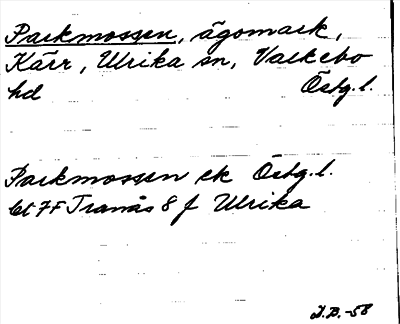 Parkmossen, ägomark,
Kärr, Ulrika sn, Valkebo
hd Östg.l.
Parkmossen ek Östg.l.
bl 7F Tranås 8 f Ulrika
I.D.-58